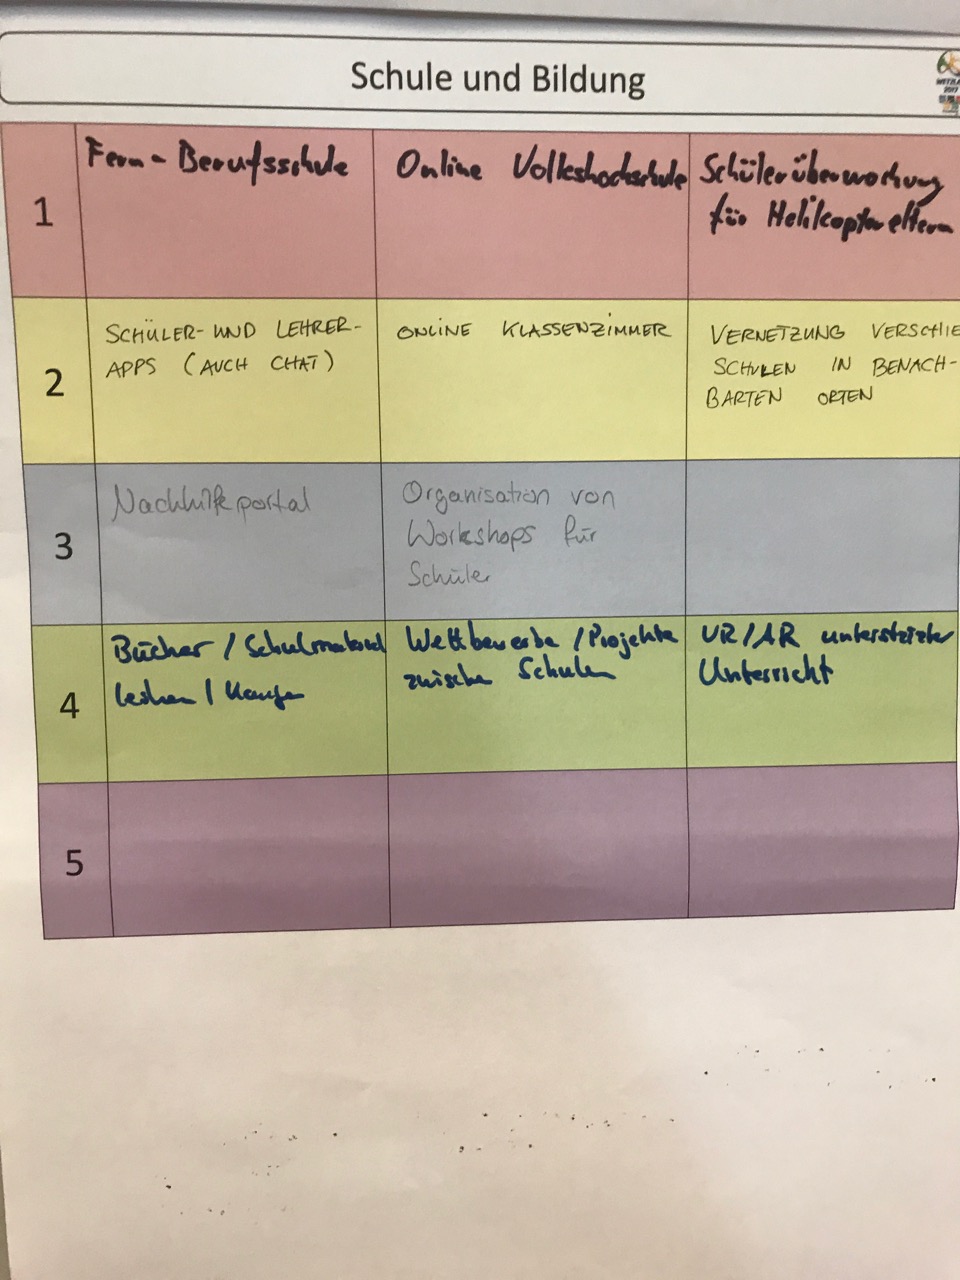 Schule und Bildung
WETZLA
2017
1
Fern-Berufsschule
Online Volkshochschule
Schülerüberwachung
für Helikoptereltern
2
SCHÜLER- UND LEHRER-
APPS (AUCH CHAT)
ONLINE KLASSENZIMMER
VERNETZUNG VERSCHIE
SCHULEN IN BENACH-
BARTEN ORTEN
3
Nachhilfeportal
Organisation von
Workshops für
Schüler
4
Bücher / Schulmaterial
leihen / Kaufen
Wettbewerbe / Projekte
zwischen Schulen
VR/AR unterstützter
Unterricht
5